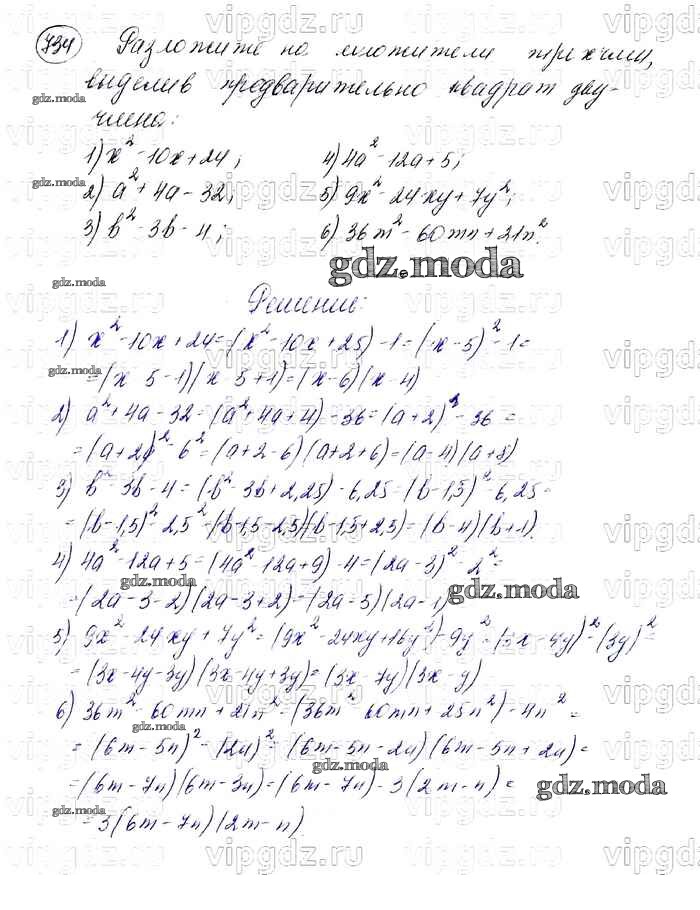 734 Разложите на множители трехчлен,
выделив предварительно квадрат дву-
члена:
1) x² - 10x + 24; 4) 4a² - 12a + 5;
2) a² + 4a - 32; 5) 9x² - 24xy + 7y²;
3) b² - 3b - 4; 6) 36m² - 60mn + 21n².
gdz.moda
Решение:
1) x² - 10x + 24 = (x² - 10x + 25) - 1 = (x - 5)² - 1 =
= (x - 5 - 1)(x - 5 + 1) = (x - 6)(x - 4)
2) a² + 4a - 32 = (a² + 4a + 4) - 36 = (a + 2)² - 36 =
= (a + 2)² - 6² = (a + 2 - 6)(a + 2 + 6) = (a - 4)(a + 8)
3) b² - 3b - 4 = (b² - 3b + 2,25) - 6,25 = (b - 1,5)² - 6,25 =
= (b - 1,5)² - 2,5² = (b - 1,5 - 2,5)(b - 1,5 + 2,5) = (b - 4)(b + 1).
4) 4a² - 12a + 5 = (4a² - 12a + 9) - 4 = (2a - 3)² - 2² =
= (2a - 3 - 2)(2a - 3 + 2) = (2a - 5)(2a - 1)
gdz.moda
5) 9x² - 24xy + 7y² = (9x² - 24xy + 16y²) - 9y² = (3x - 4y)² - (3y)² =
= (3x - 4y - 3y)(3x - 4y + 3y) = (3x - 7y)(3x - y)
6) 36m² - 60mn + 21n² = (36m² - 60mn + 25n²) - 4n² =
= (6m - 5n)² - (2n)² = (6m - 5n - 2n)(6m - 5n + 2n) =
= (6m - 7n)(6m - 3n) = (6m - 7n) · 3(2m - n) =
gdz.moda
= 3(6m - 7n)(2m - n)
vipgdz.ru